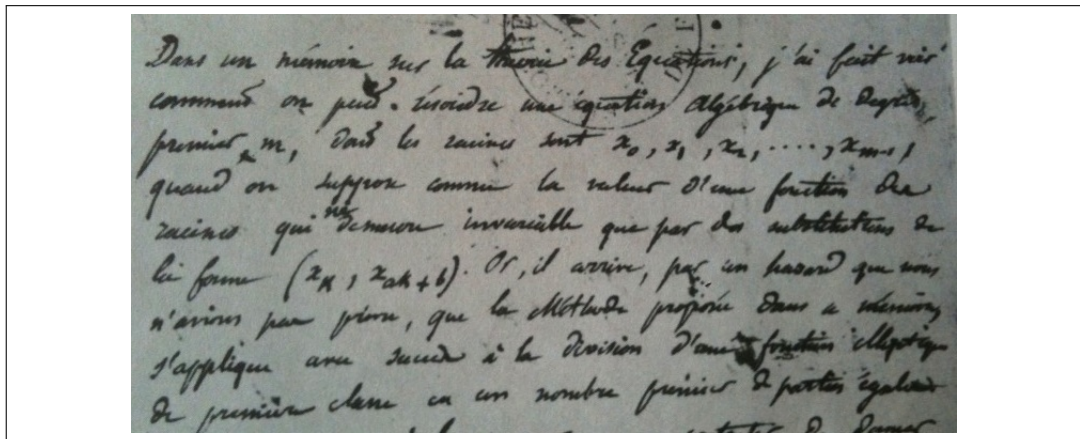 Dans un mémoire sur la théorie des Équations, j'ai fait voir
comment on peut résoudre une équation algébrique de degré
premier m, dont les racines sont x₀, x₁, x₂, ...., xₘ₋₁,
quand on suppose connue la valeur d'une fonction des
racines qui ne demeure invariable que par des substitutions de
la forme (xₖ, xₐₖ₊b). Or, il arrive, par un hasard que nous
n'avions pas prévu, que la Méthode proposée dans ce mémoire,
s'applique avec succès à la division d'une fonction elliptique
de première classe en un nombre premier de parties égales